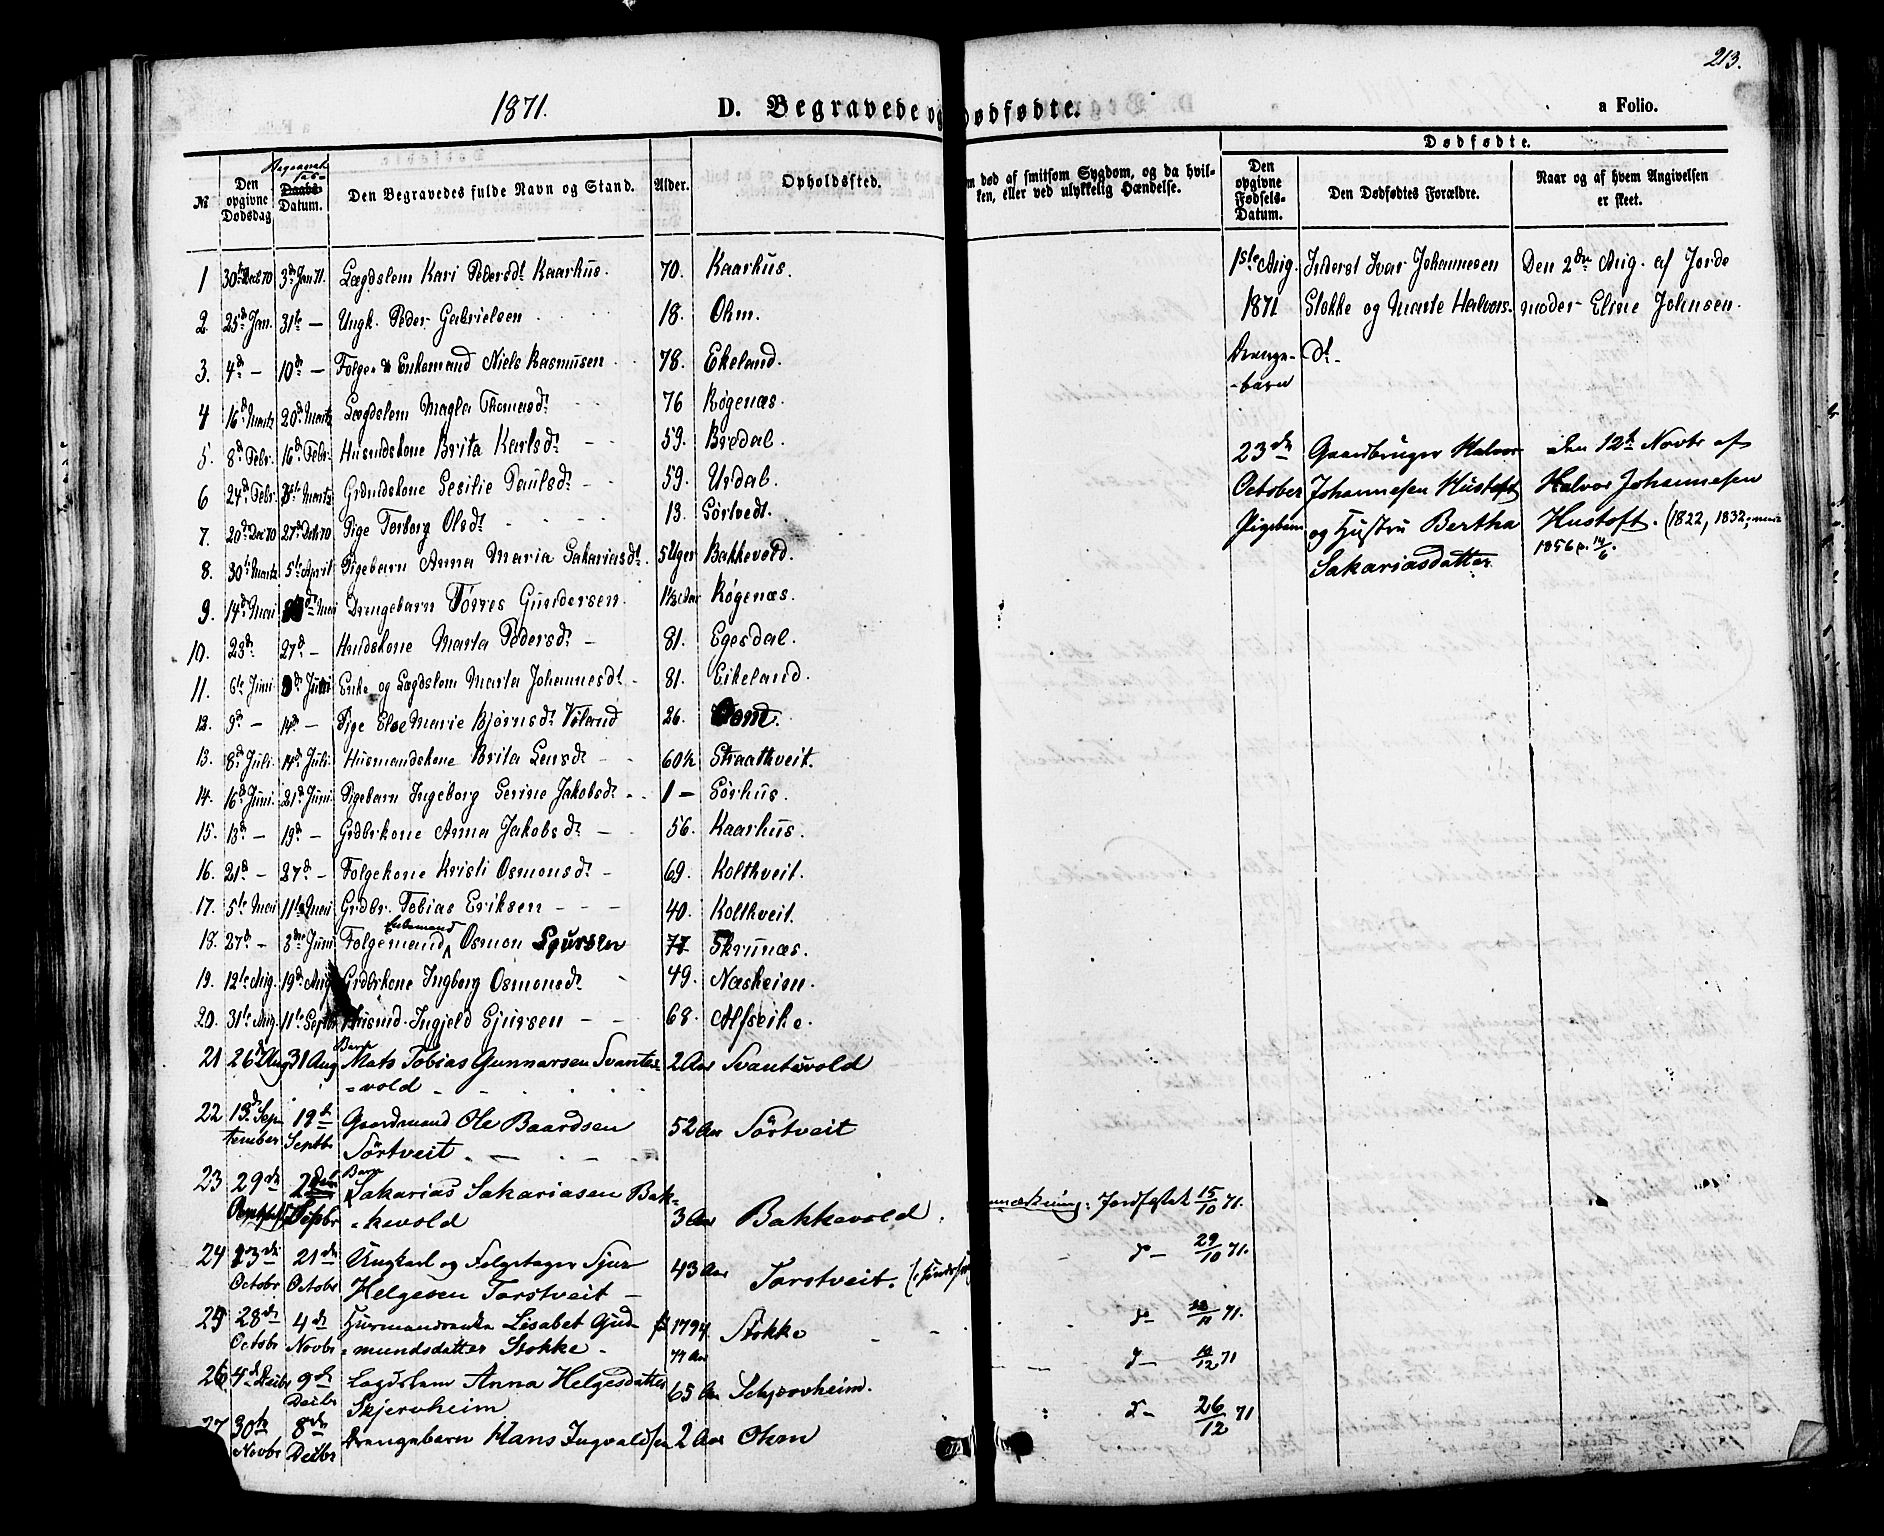 213.
1871.
D. Begravede og Dødfødte.
a Folio.
Dødfødte.
№
Den opgivne Dødsdag
Begravel-ses-
Daabs-
Datum.
Den Begravedes fulde Navn og Stand.
Alder.
Opholdssted.
m død af smitsom Sygdom, og da hvil-
ken, eller ved ulykkelig Hændelse.
Den opgivne Fødsels-Datum.
Den Dødfødtes Forældre.
Naar og af hvem Angivelsen er skeet.
1 30te Dec 70 3d Jan 71. Lægdslem Kari Pedersdt Kaarhus. 70. Kaarhus.
2 25d Jan. 31te — Ungk. Peder Gabrielsen 18. Ohm.
3. 4d — 10d — Folge- & Enkemand Niels Rasmusen 78. Ekeland.
4 16d Martz 20d Martz Lægdslem Magla Thomasdt 76 Røgenæs.
5. 8d Febr. 16d Febr. Husmdskone Brita Karlsdt 59. Bredal.
6 24d Febr. Martz Grdmdskone Sesilie Paulsdt 59. Urdal.
7. 20d Dec 70 27d Dec 70 Pige Torborg Olsdt 13. Sörtvedt.
8. 30te Martz 5te April Pigebarn Anna Maria Sakariasdt. 5 Uger Bakkevold.
9. 14d Mai Mai Drengebarn Torres Gundersen. Røgenæs.
10. 23d 27d — Husdskone Marta Pedersdt — 81. Egesdal.
11. 6te Juni Juni Enke og Lægdslem Marta Johannesdt 81. Eikeland.
12. 9d — 14d — Pige Else Marie Bjørnsdt Våland 26.
13. 8d Juli. 14d Juli. Husmandskone Brita Lensdt 60½ Straathveit.
14. 16d Juni. 21d Juni Pigebarn Ingeborg Serine Jakobsdt 1 — Sörhus.
15. 13d — 19d — Grdbrkone Anna Jakobsdt 56. Kaarhus.
16. 21d — 27d — Folgekone Kristi Osmonsdt 69. Kolthveit.
17. 5te Mai 11te Mai Grdbr. Tobias Eriksen — — — 40. Kolthveit.
18. 27d — 8de Juni Folgemand Enkemand Osmon Sjursen 77 Skrunæs.
19. 12te Aug. 19d Aug. Grdbrkone Ingborg Osmonsdt 49. Næsheim.
20. 31te Aug. 11te Septbr Husmd. Ingjeld Sjursen — — 68. Alfseike.
21 26d Aug 31 Aug Barn Mats Tobias Gunnarsen Svante-
-vold 2 Aar Svantevold
22 13d Sep-
tember 19de
Septbr Gaardmand Ole Baardsen
Sörtveit 52 Aar Sörtveit
23 29de Barn Sakarias Sakariasen Bak-
-kevold 3 Aar Bakkevold.
24 13de
Octobr 21de
Octobr Ungkarl og Folgetager Sjur
Helgesen Torstveit — 43 Aar Torstveit.
25 28de
Octobr 4de
Novbr Lisabet Gud-
-mundsdatter Stokke 1794
77 Aar Stokke
26 4d Decbr 9de
Decbr Lægdslem Anna Helgesdatter
Skjervheim 65 Aar Schjervheim.
27 30te
Novbr 8de
Decbr Drengebarn Hans Ingvaldsen 2 Aar Ohm
nmærkning: Jordfæstet 15/10 71.
d — 29/10 71.
d — 71.
d — 10/12 71
d — 26/12 71
1ste Aug.
1871
Drenge-
-barn
Inderst Ivar Johannesen
Stokke og Marte Halvors-
dt.
Den 2den Aug. af Jorde
moder Eline Johnsen.
23de
October
Pigebarn
Gaardbruger Halvor
Johannesen Hustoft
og Hustru Bertha
Sakariasdatter
Den 12te Novbr af
Halvor Johannesen
Hustoft. (1822, 1832,
1856